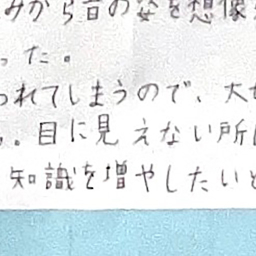 みから昔の姿を想像
った。
われてしまうので、大
。目に見えない所
知識を増やしたいと